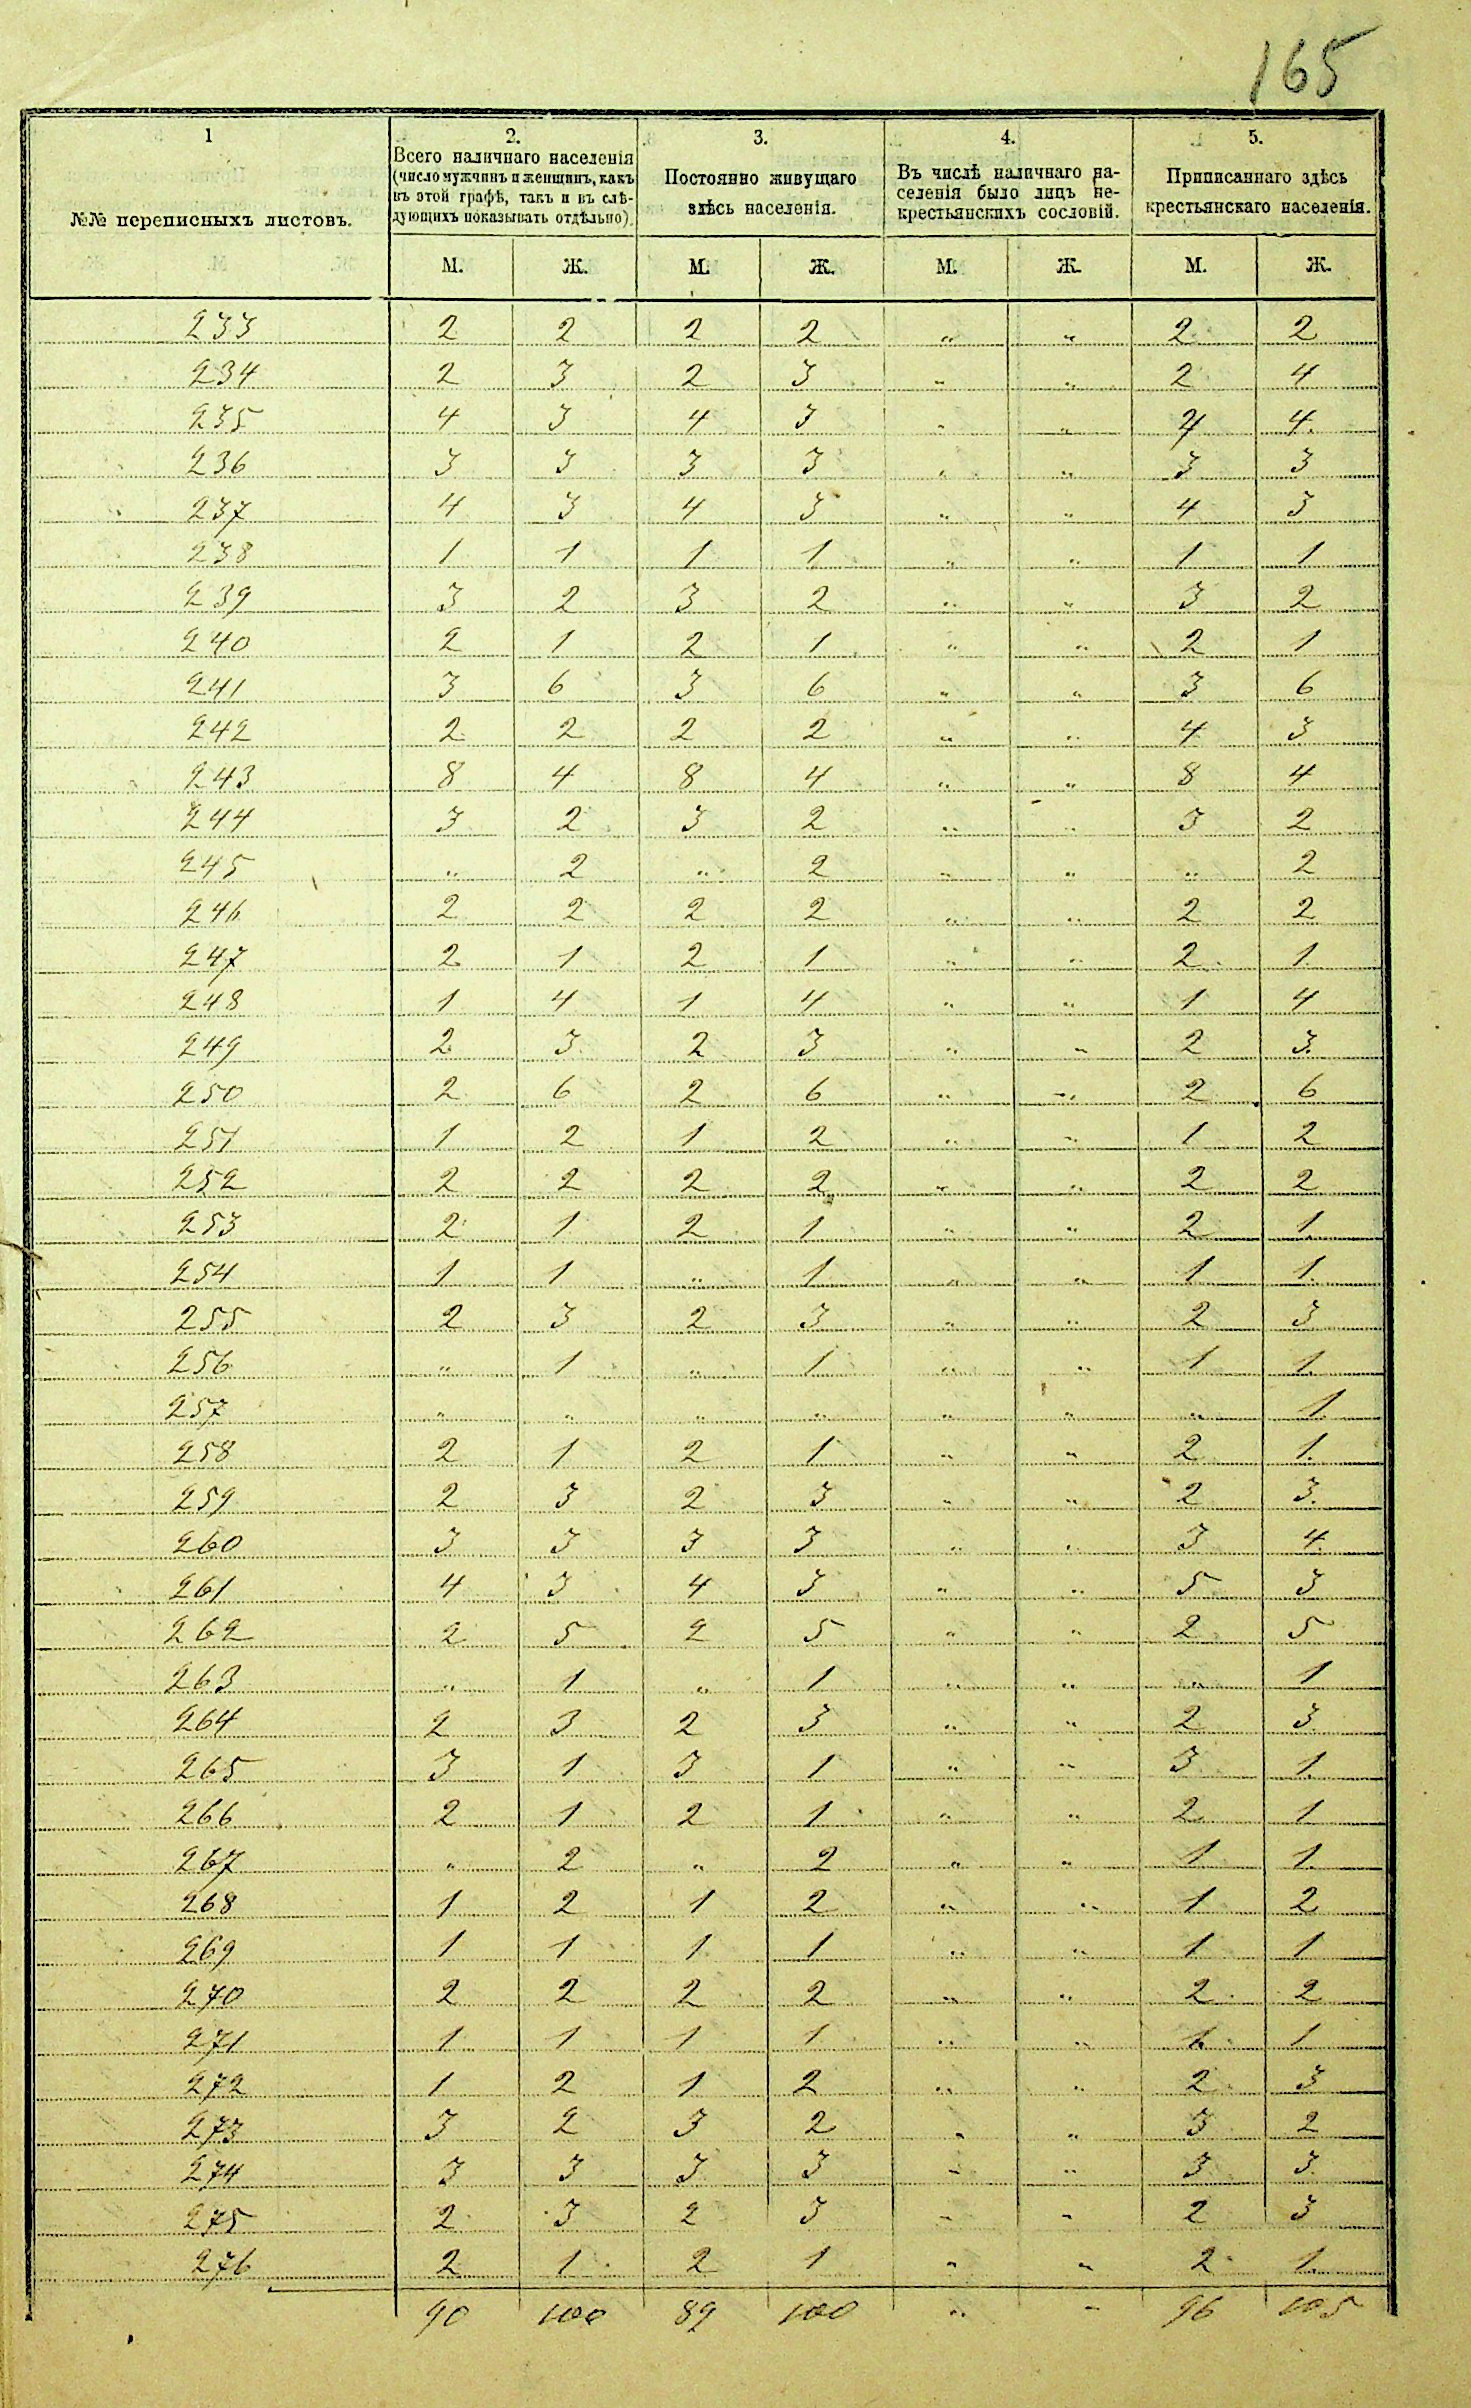 165
1 2. 3. 4. 5.
№№ переписныхъ листовъ.
Всего наличнаго населенія
(число мужчинъ и женщинъ, какъ
въ этой графѣ, такъ и въ слѣ-
дующихъ показывать отдѣльно).
Постоянно живущаго
здѣсь населенія.
Въ числѣ наличнаго на-
селенія было лицъ не-
крестьянскихъ сословій.
Приписаннаго здѣсь
крестьянскаго населенія.
М. Ж. М. Ж. М. Ж. М. Ж.
233 2 2 2 2 " " 2 2
234 2 3 2 3 " " 2 4
235 4 3 4 3 " " 4 4
236 3 3 3 3 " " 3 3
237 4 3 4 3 " " 4 3
238 1 1 1 1 " " 1 1
239 3 2 3 2 " " 3 2
240 2 1 2 1 " " 2 1
241 3 6 3 6 " " 3 6
242 2 2 2 2 " " 4 3
243 8 4 8 4 " " 8 4
244 3 2 3 2 " " 3 2
245 " 2 " 2 " " " 2
246 2 2 2 2 " " 2 2
247 2 1 2 1 " " 2 1
248 1 4 1 4 " " 1 4
249 2 3 2 3 " " 2 3
250 2 6 2 6 " " 2 6
251 1 2 1 2 " " 1 2
252 2 2 2 2 " " 2 2
253 2 1 2 1 " " 2 1
254 1 1 " 1 " " 1 1
255 2 3 2 3 " " 2 3
256 " 1 " 1 " " 1 1
257 " " " " " " " 1
258 2 1 2 1 " " 2 1
259 2 3 2 3 " " 2 3
260 3 3 3 3 " " 3 4
261 4 3 4 3 " " 5 3
262 2 5 2 5 " " 2 5
263 " 1 " 1 " " " 1
264 2 3 2 3 " " 2 3
265 3 1 3 1 " " 3 1
266 2 1 2 1 " " 2 1
267 " 2 " 2 " " 1 1
268 1 2 1 2 " " 1 2
269 1 1 1 1 " " 1 1
270 2 2 2 2 " " 2 2
271 1 1 1 1 " " 1 1
272 1 2 1 2 " " 2 3
273 3 2 3 2 " " 3 2
274 3 3 3 3 " " 3 3
275 2 3 2 3 " " 2 3
276 2 1 2 1 " " 2 1
90 100 89 100 " " 96 105